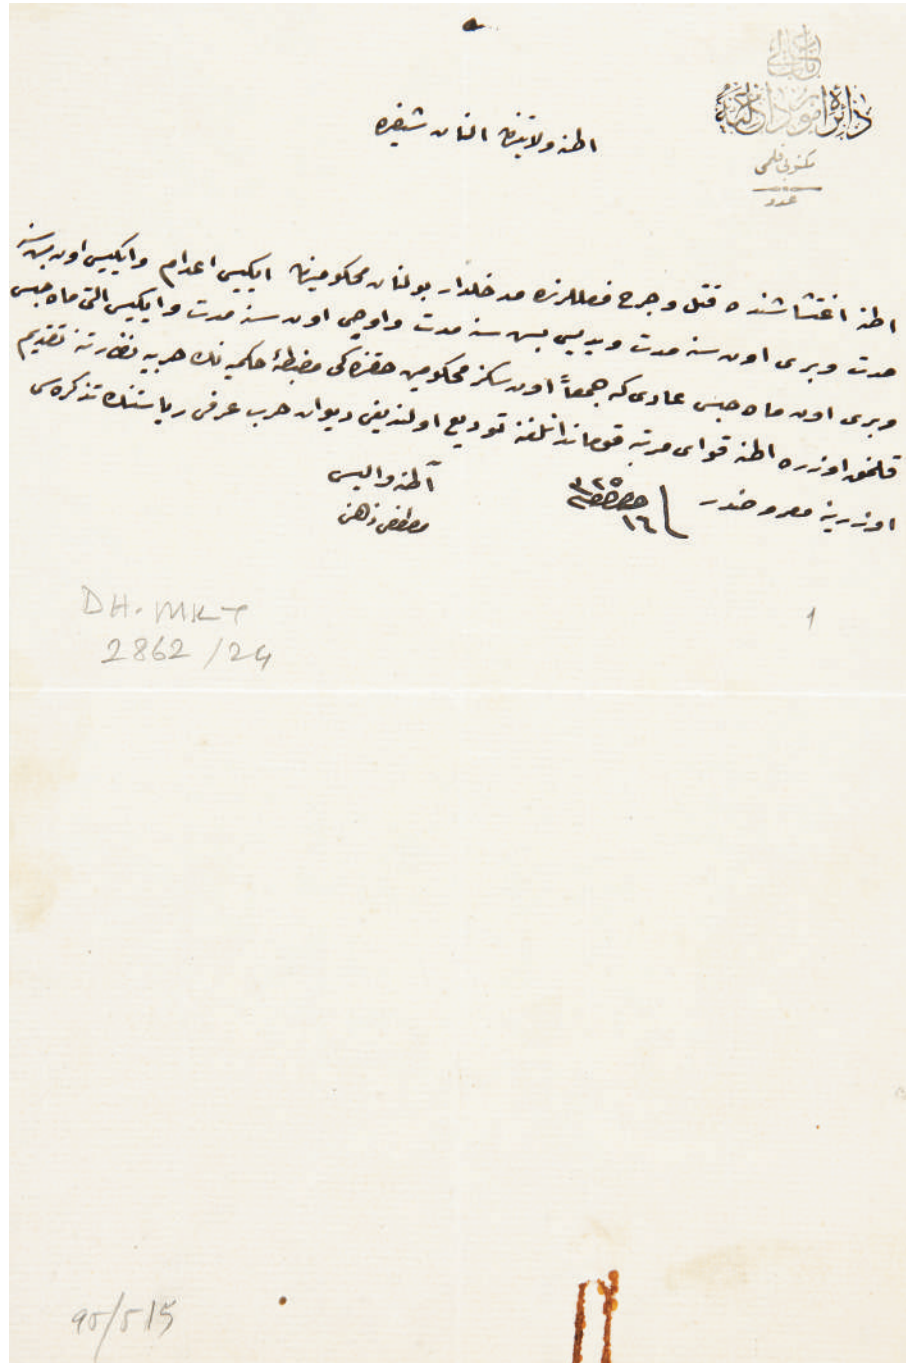 باب عالی
دائرهٔ امور داخلیه
مکتوبی قلمی
عدد
اطنه ولایتندن آلنان شفره
اطنه اغتشاشنده قتل و جرح فعللرنده مدخلدار بولنان محکومیندن ایکیسی اعدام وایکیسی اون بش سنه
مدت وبری اون سنه مدت ویدیسی بش سنه مدت واوچی اون سنه مدت وایکیسی التی ماه حبس
وبری اون ماه حبس عادی که جمعاً اون سکز محکومین حقنده کی مضبطهٔ حکمیه نك حربیه نظارتنه تقدیم
قلنمق اوزره اطنه قوای مرتبه قوماندانلغنه تودیع اولندیغی دیوان حرب عرفی ریاستنك تذکره سی
اوزرینه معروضدر
٣٢٥
١٦
آطنه والیسی
مصطفی ذهنی
DH. MKT
2862/24
1
95/515